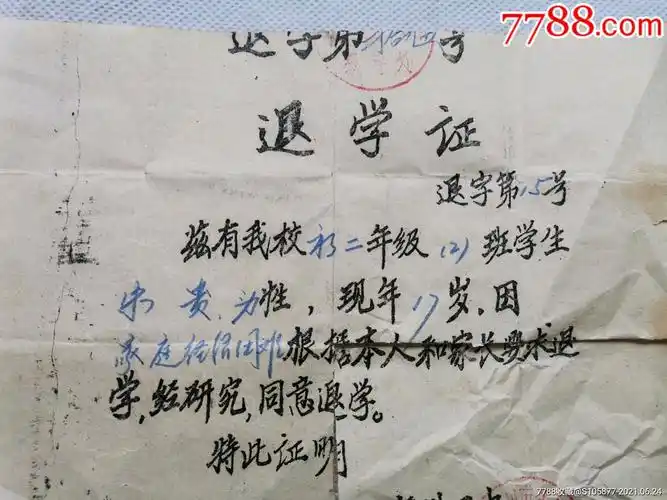 7788.com
退字第拾四号
退学证
退字第15号
兹有我校初二年级(2)班学生
宋贵,男性,现年17岁,因
家庭经济困难根据本人和家长要求退
学,经研究,同意退学。
特此证明
7788收藏@S105877-2021.06.24